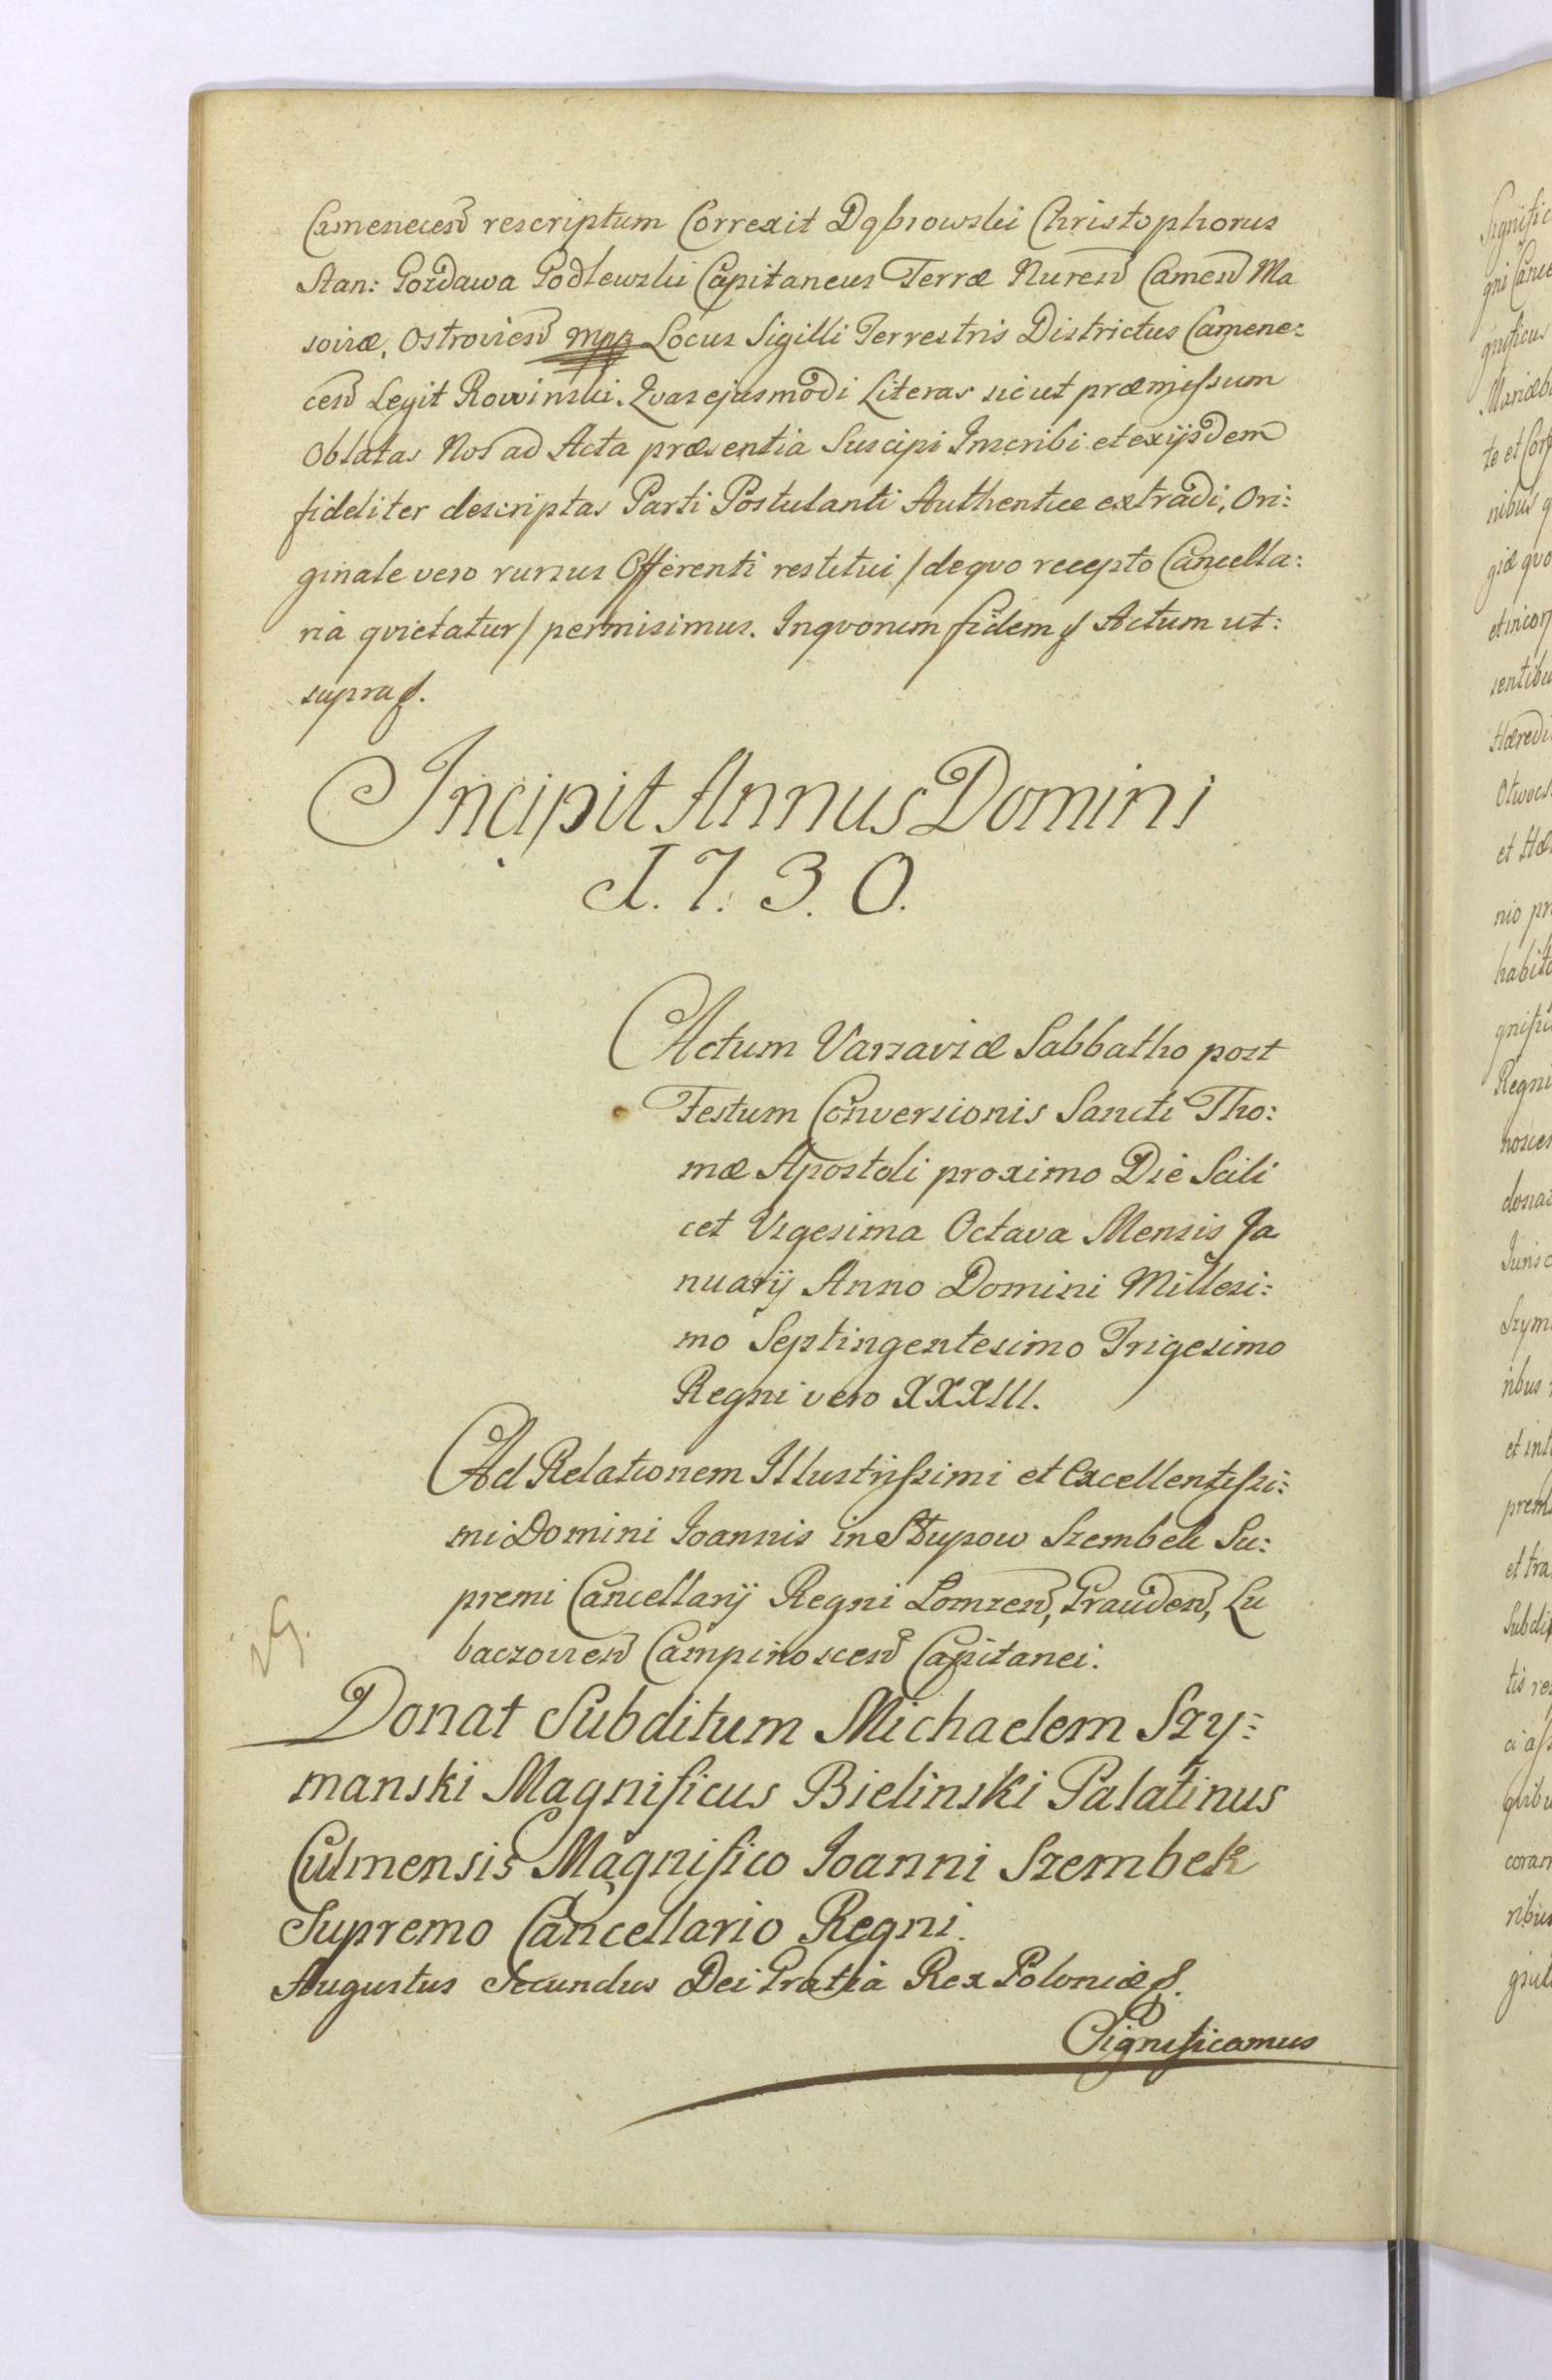 Camenecen rescriptum Correxit Dąbrowski Christophorus
Stan: Pozdawa Podlewski Capitaneus Terræ Nuren Camen Ma
soviæ, Ostrovien mpp Locus Sigilli Terrestris Districtus Camene:
cen Legit Rowinski. Qvas ejusmodi Literas sicut præmissum
Oblatas Nos ad Acta præsentia Suscipi Inscribi et ex ijsdem
fideliter descriptas Parti Postulanti Authentice extradi, Ori:
ginale vero rursus Offerenti restitui / de qvo recepto Cancella:
ria qvietatur / permisimus. In qvorum fidem Actum ut:
supra
Incipit Annus Domini
1.7.3.0.
Actum Varsaviæ Sabbatho post
Festum Conversionis Sancti Tho:
mæ Apostoli proximo Die Scili
cet Vigesima Octava Mensis Ja
nuarij Anno Domini Millesi:
mo Septingentesimo Trigesimo
Regni vero XXXIII.
Ad Relationem Illustrissimi et Excellentissi:
mi Domini Joannis in Słupow Szembek Su:
premi Cancellarij Regni Lomzen, Grauden, Lu
baczovien Campinoscen Capitanei.
Donat Subditum Michaelem Szy:
manski Magnificus Bielinski Palatinus
Culmensis Magnifico Joanni Szembek
Supremo Cancellario Regni.
Augustus Secundus Dei Gratia Rex Poloniæ
Significamus